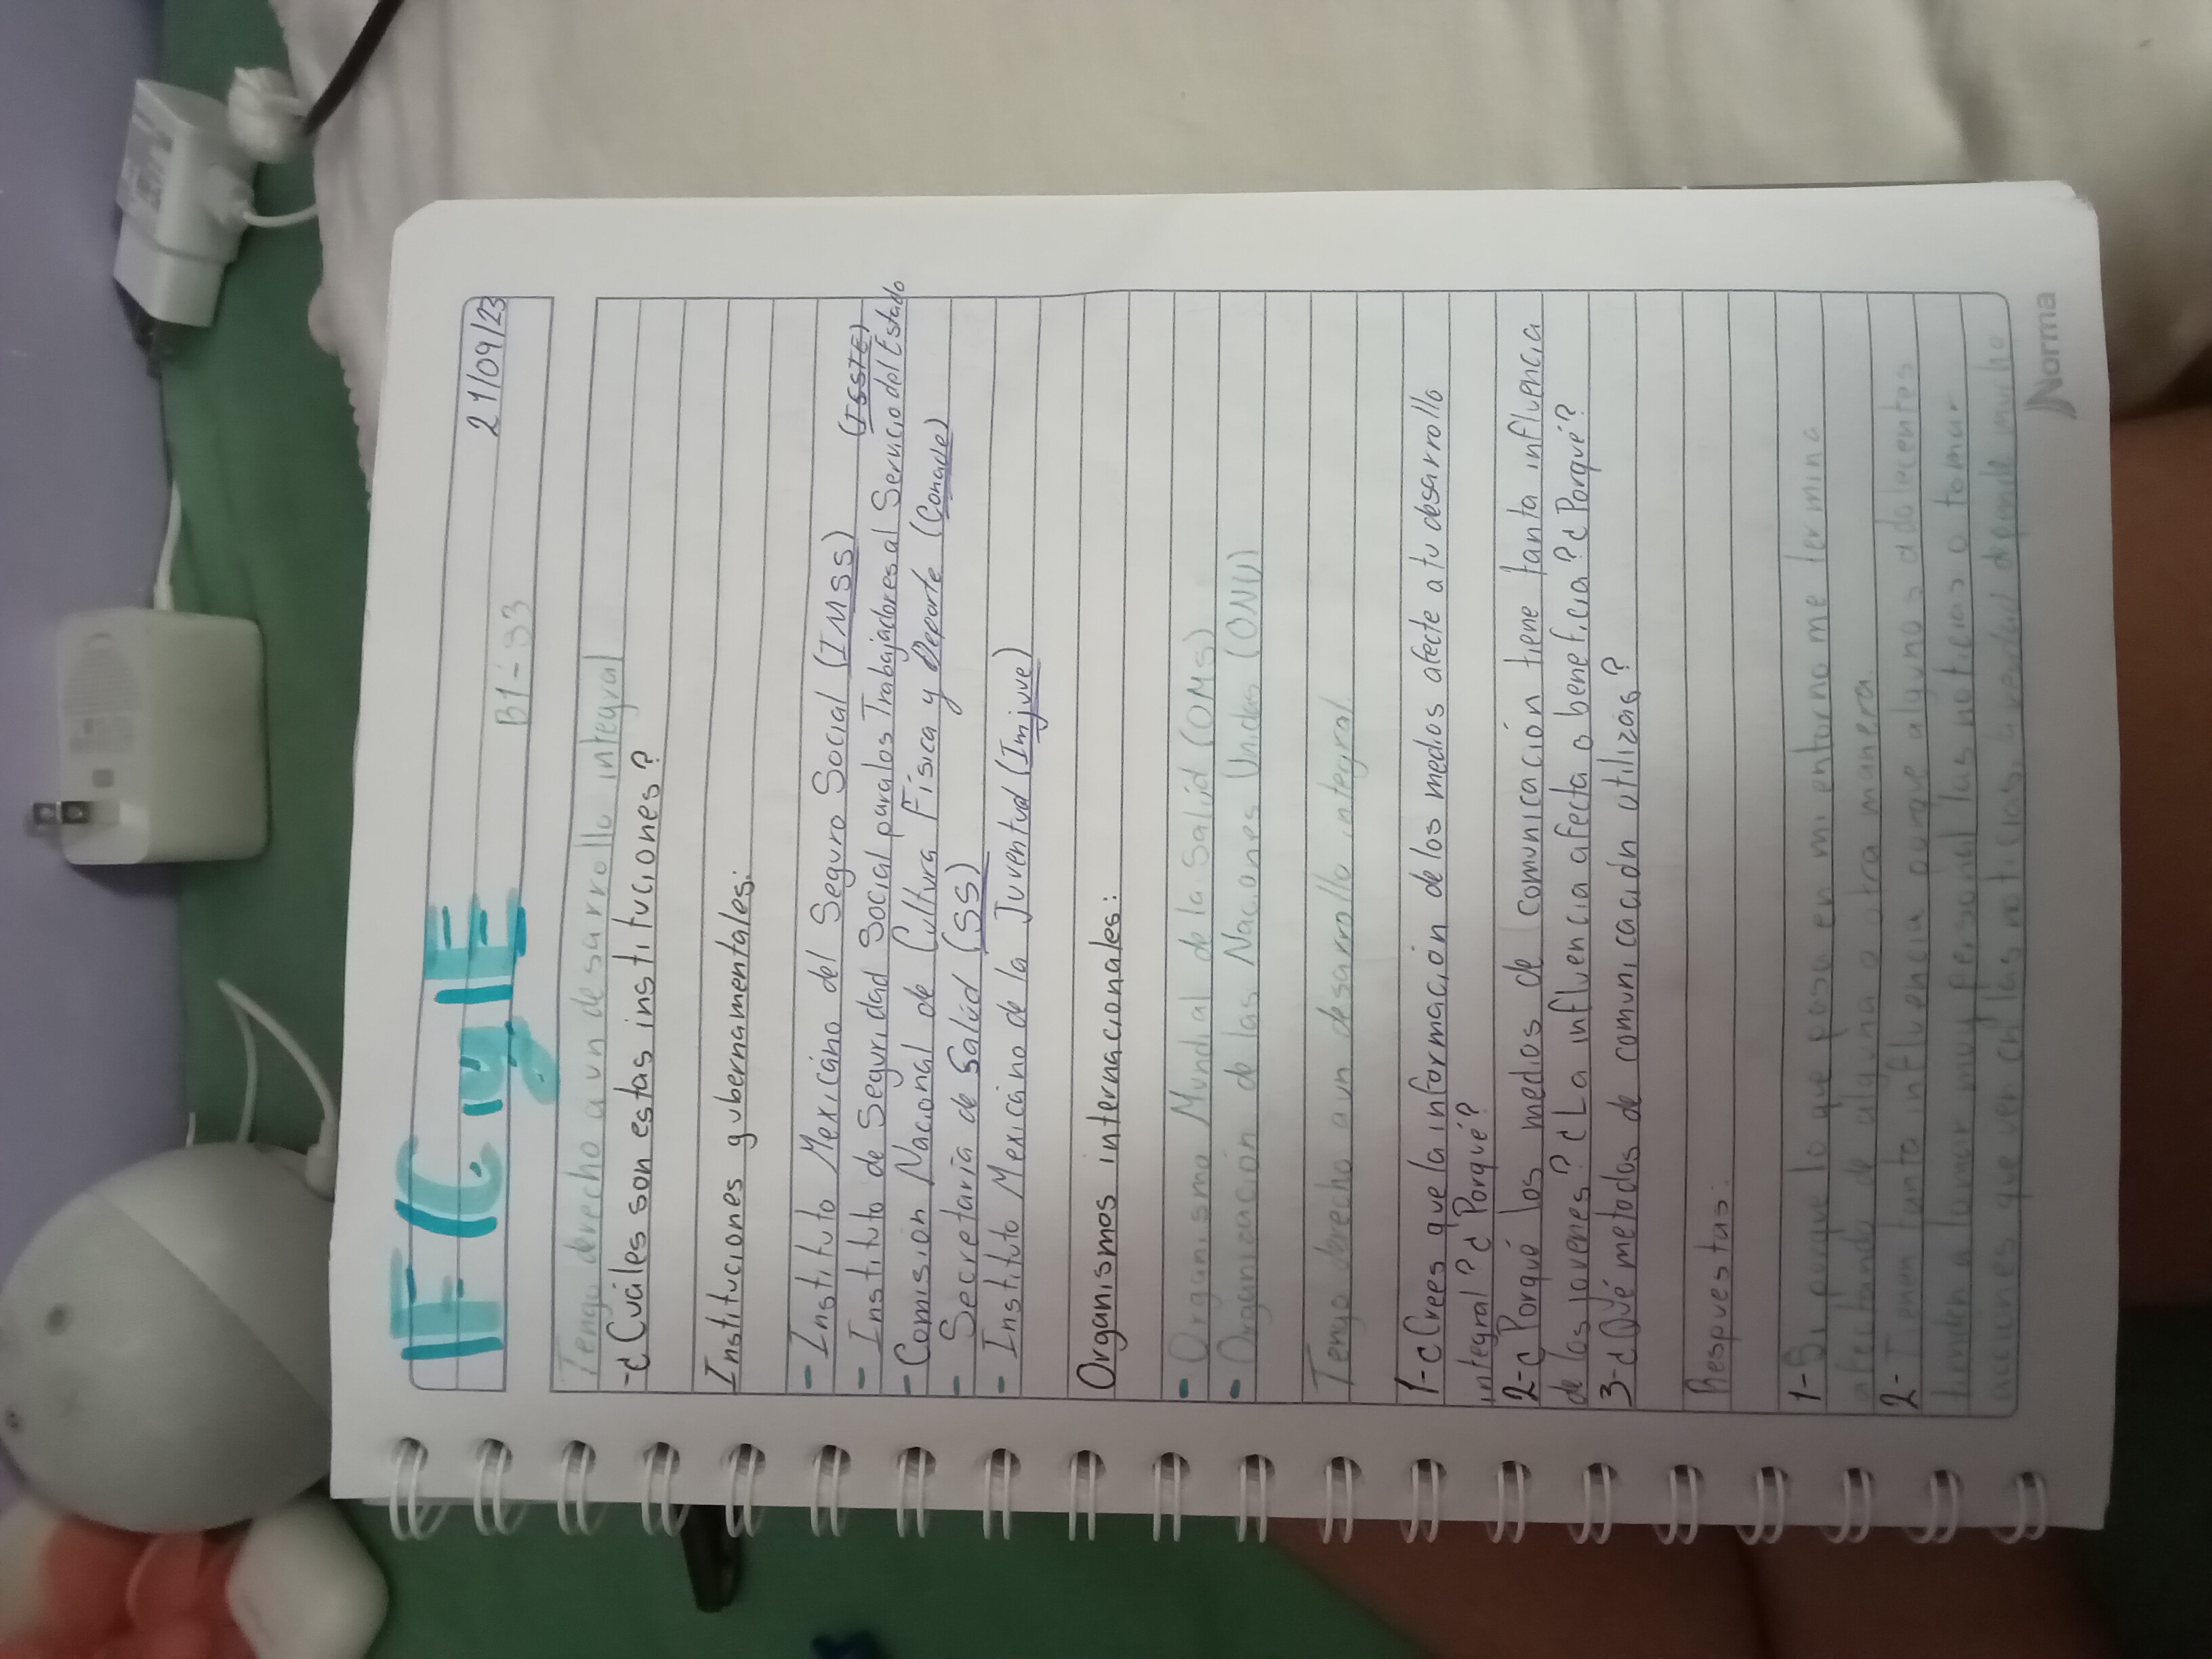 FCyE
21/09/23
B1-S3
Tengo derecho a un desarrollo integral
-¿Cuáles son estas instituciones?
Instituciones gubernamentales:
- Instituto Mexicano del Seguro Social (IMSS)
(ISSTE)
- Instituto de Seguridad Social para los Trabajadores al Servicio del Estado
- Comisión Nacional de Cultura Física y Deporte (Conade)
- Secretaría de Salúd (SS)
- Instituto Mexicano de la Juventud (Imjuve)
Organismos internacionales:
- Organismo Mundial de la Salúd (OMS)
- Organización de las Naciones Unidas (ONU)
Tengo derecho a un desarrollo integral
1-¿Crees que la información de los medios afecte a tu desarrollo
integral? ¿Porqué?
2-¿Porqué los medios de comunicación tiene tanta influencia
de los jovenes? ¿La influencia afecta o beneficia? ¿Porqué?
3-¿Qué metodos de comunicación utilizas?
Respuestas:
1- Si porque lo que pasa en mi entorno me termina
afectando de alguna o otra manera
2- Tienen tanta influencia porque algunos adolecentes
tienden a tomar muy personal las noticias o tomar
acciones que ven en las noticias, la verdad depende mucho
Norma